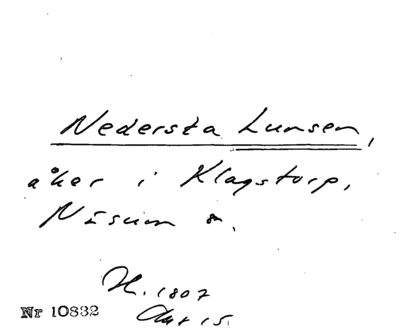 Nedersta Lunsen,
åker i Klagstorp,
Näsum sn.
H. 1807
Akt 15.
Nr 10832